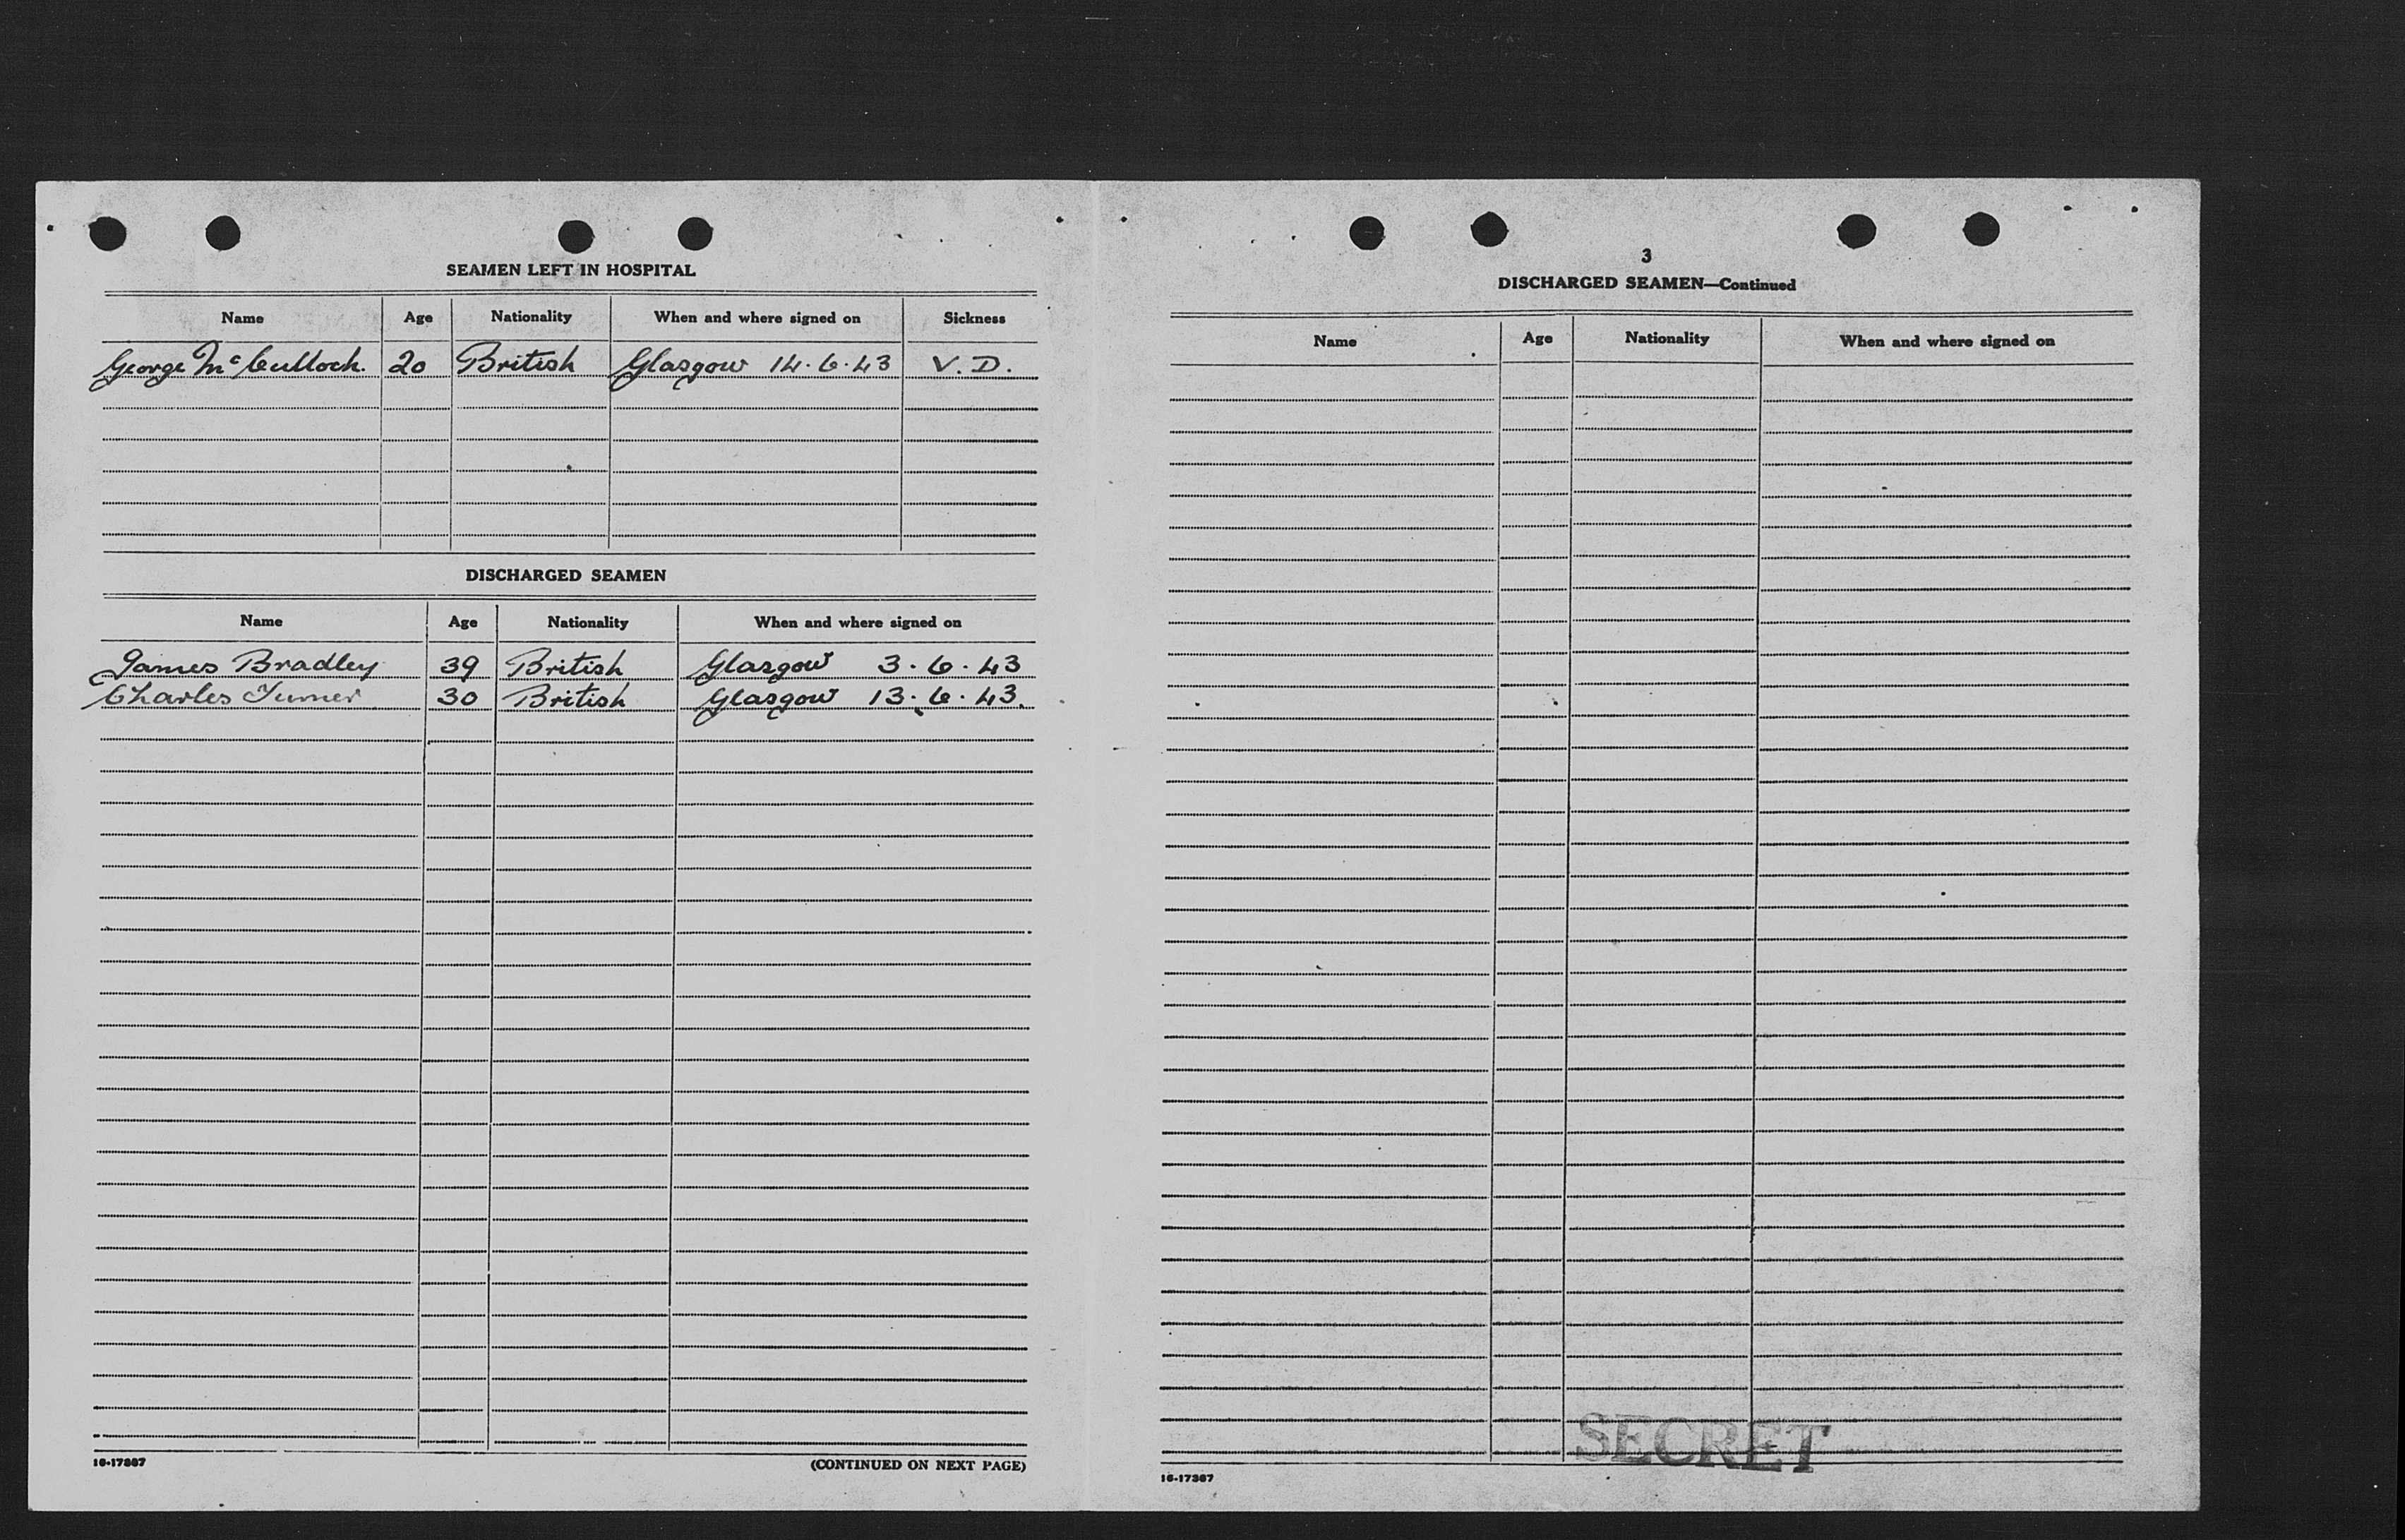 SEAMEN LEFT IN HOSPITAL
Name Age Nationality When and where signed on Sickness
George McCulloch. 20 British Glasgow 14.6.43 V.D.
DISCHARGED SEAMEN
Name Age Nationality When and where signed on
James Bradley 39 British Glasgow 3.6.43
Charles Turner 30 British Glasgow 13.6.43.
16-17367
(CONTINUED ON NEXT PAGE)
3
DISCHARGED SEAMEN—Continued
Name Age Nationality When and where signed on
SECRET
16-17367